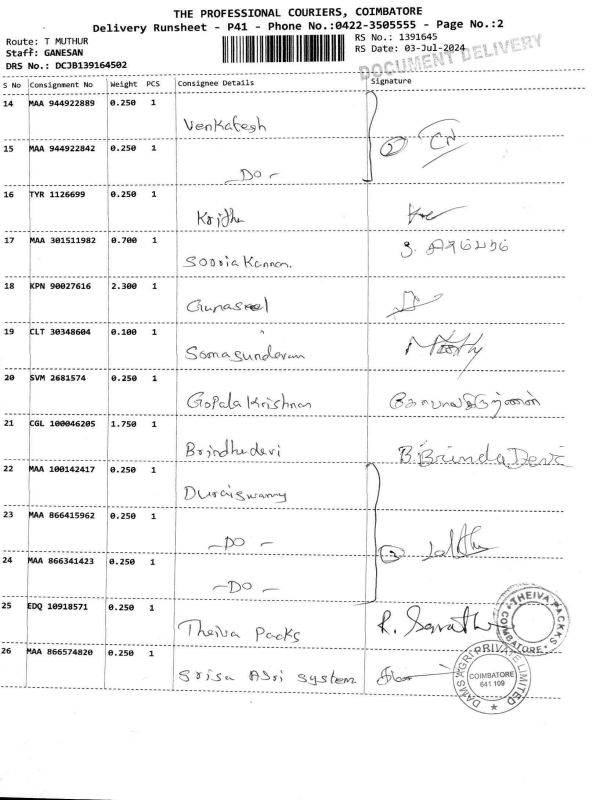 THE PROFESSIONAL COURIERS, COIMBATORE
Delivery Runsheet - P41 - Phone No.:0422-3505555 - Page No.:2
Route: T MUTHUR
RS No.: 1391645
Staff: GANESAN
RS Date: 03-Jul-2024
DRS No.: DCJB139164502
DOCUMENT DELIVERY
S No Consignment No Weight PCS Consignee Details Signature
14 MAA 944922889 0.250 1
Venkatesh
15 MAA 944922842 0.250 1
2
Do
16 TYR 1126699 0.250 1
17 MAA 301511982 0.700 1
Sooria Kannan.
18 KPN 90027616 2.300 1
19 CLT 30348604 0.100 1
Somasundaram
20 SVM 2681574 0.250 1
Gopala Krishnan
21 CGL 100046205 1.750 1
Brindhadevi B. Brinda Devi
22 MAA 100142417 0.250 1
Duraiswamy
23 MAA 866415962 0.250 1
- DO -
24 MAA 866341423 0.250 1
- DO -
25 EDQ 10918571 0.250 1
Theiva Packs
THEIVA PACKKS COIMBATORE
26 MAA 866574820 0.250 1
system
PRIVATE LIMITED
COIMBATORE
641 109